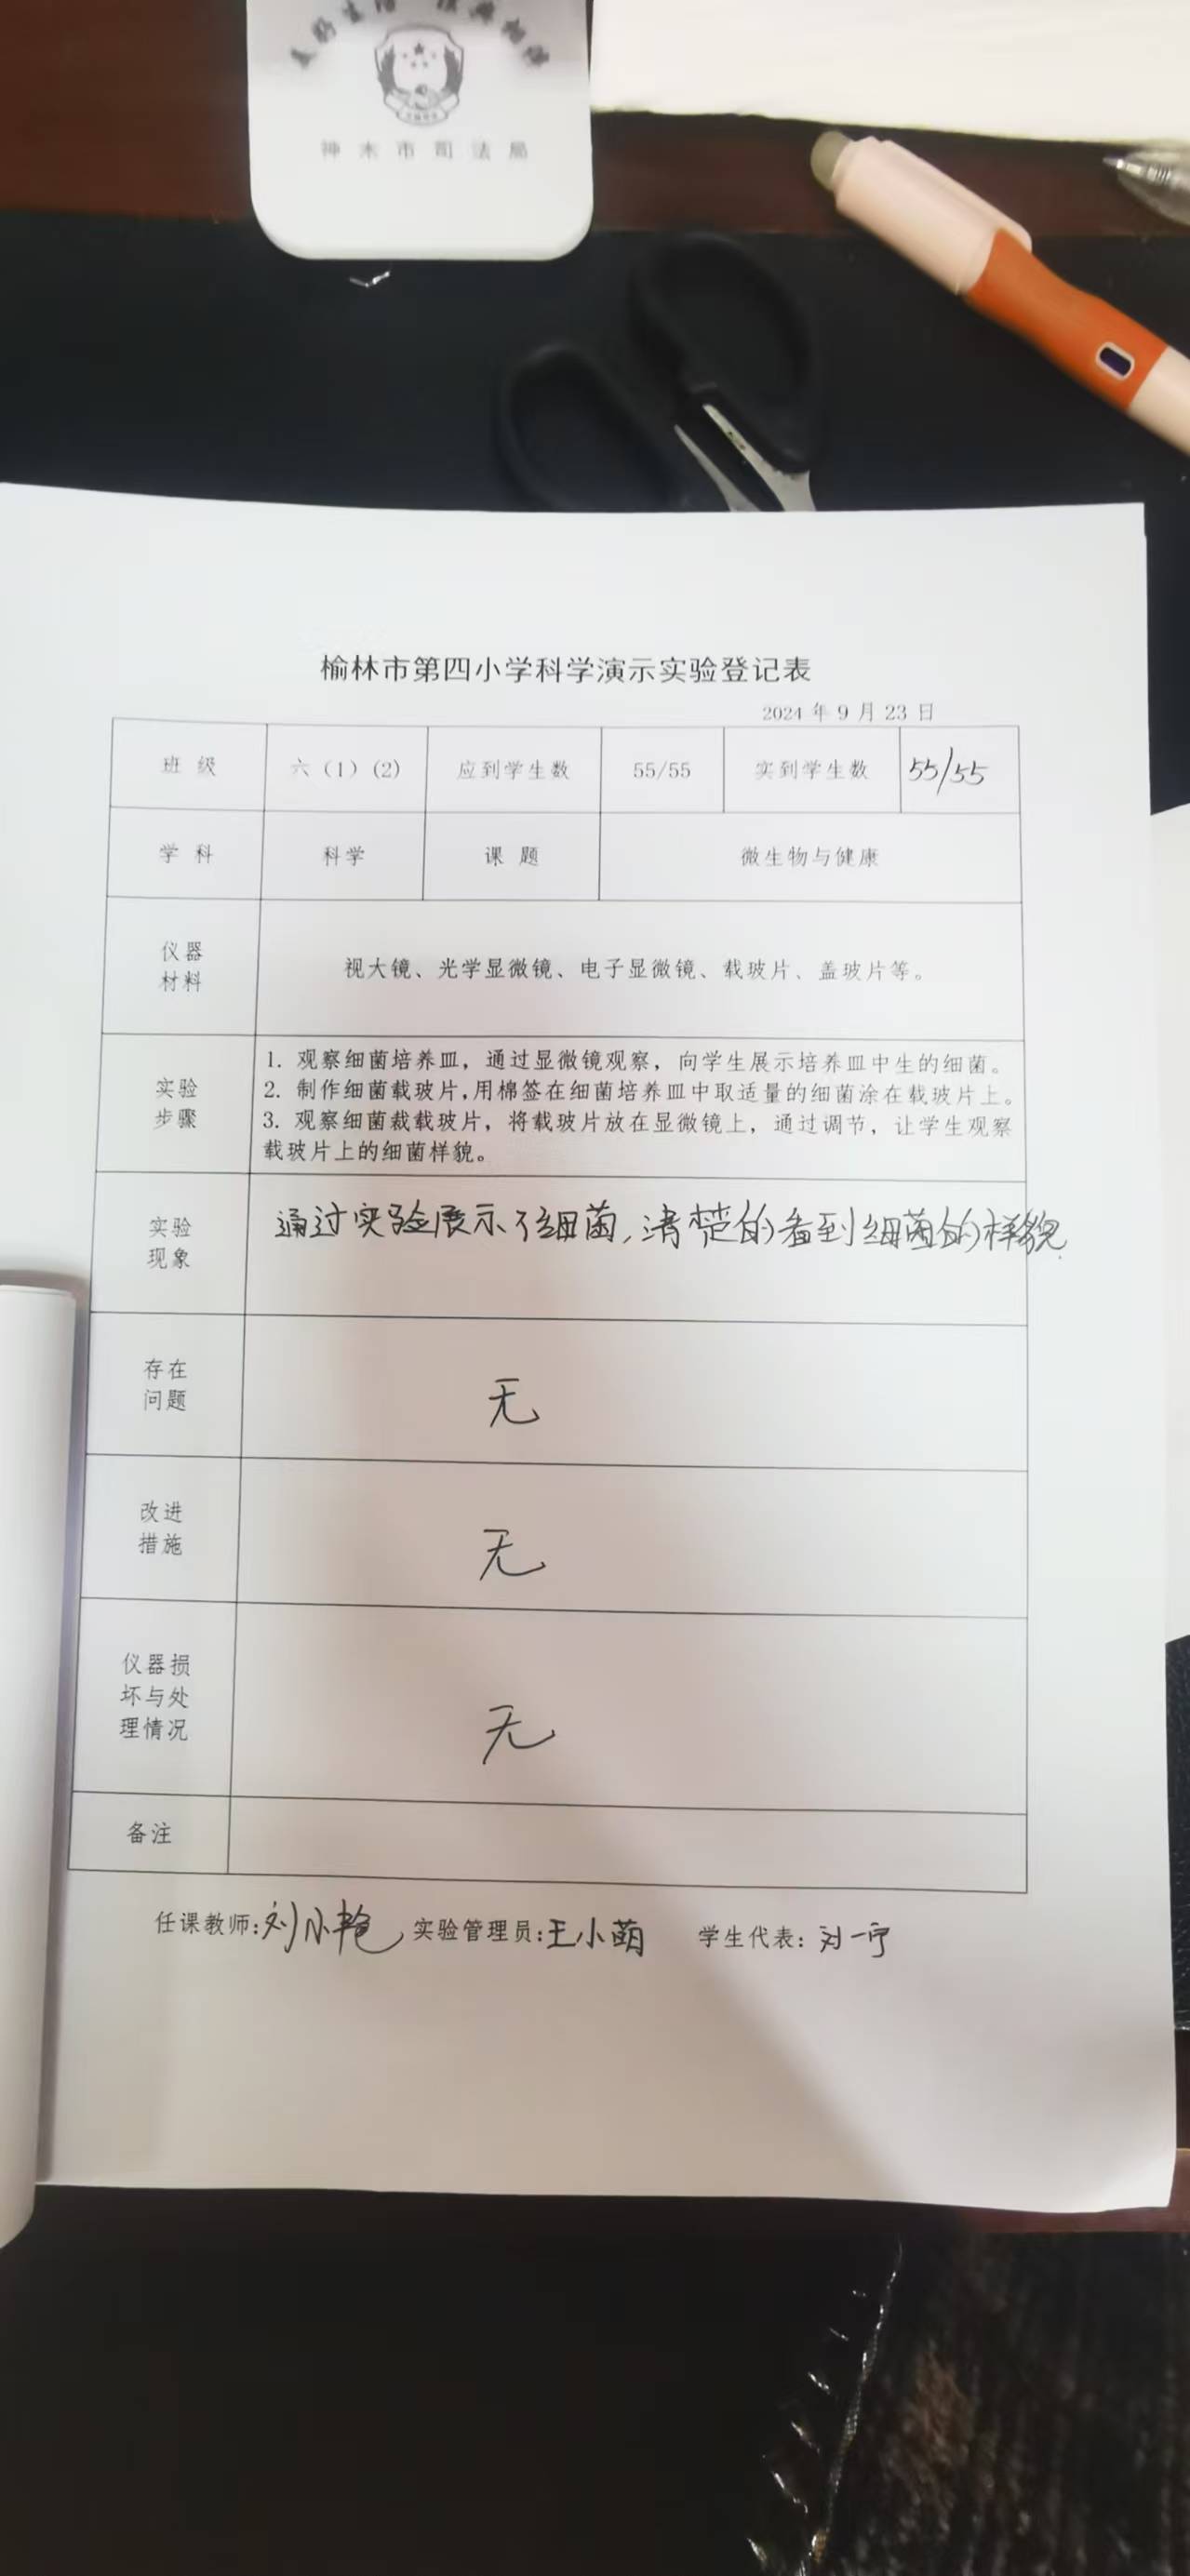 神木市司法局
榆林市第四小学科学演示实验登记表
2024 年 9 月 23 日
班 级 六（1）(2) 应到学生数 55/55 实到学生数 55/55
学 科 科学 课 题 微生物与健康
仪器
材料
视大镜、光学显微镜、电子显微镜、载玻片、盖玻片等。
实验
步骤
1. 观察细菌培养皿，通过显微镜观察，向学生展示培养皿中生的细菌。
2. 制作细菌载玻片，用棉签在细菌培养皿中取适量的细菌涂在载玻片上。
3. 观察细菌裁载玻片，将载玻片放在显微镜上，通过调节，让学生观察
载玻片上的细菌样貌。
实验
现象
通过实验展示了细菌，清楚的看到细菌的样貌.
存在
问题
无
改进
措施
无
仪器损
坏与处
理情况
无
备注
任课教师:刘小艳 实验管理员:王小萌 学生代表: 刘一宁